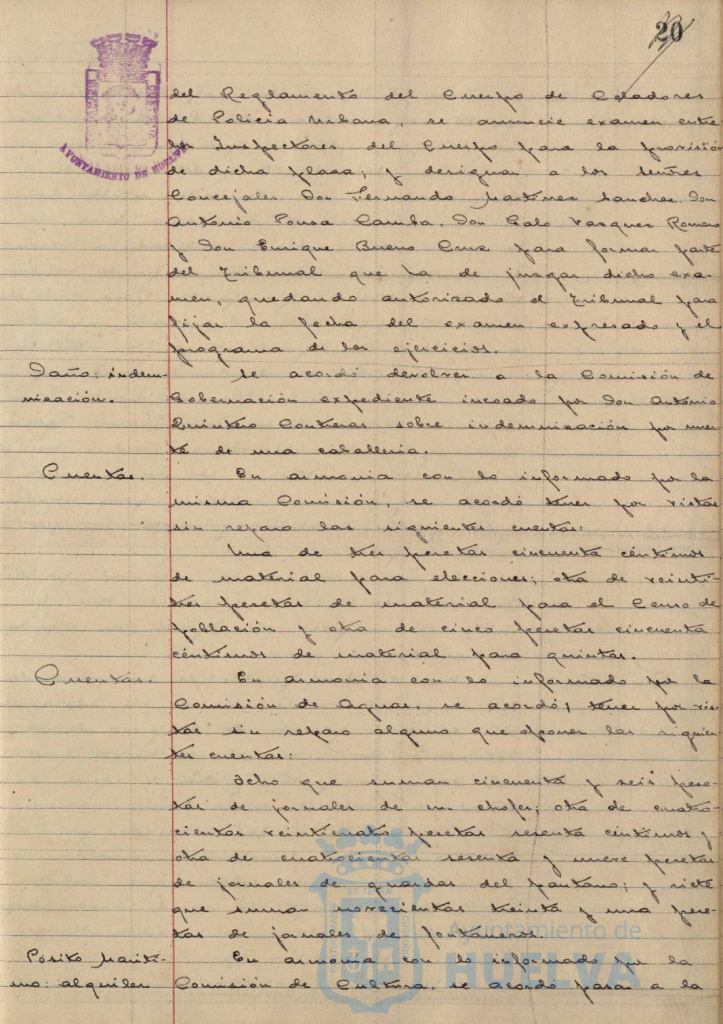 20
AYUNTAMIENTO DE HUELVA
del Reglamento del Cuerpo de Celadores
de Policia Urbana, se anuncie examen entre
los Inspectores del Cuerpo para la provisión
de dicha plaza; y designar a los señores
Concejales Don Fernando Martinez Sanchez, Don
Antonio Pousa Camba, Don Galo Vazquez Romero
y Don Enrique Bueno Cruz para formar parte
del Tribunal que ha de juzgar dicho exa-
men, quedando autorizado el Tribunal para
fijar la fecha del examen expresado y el
programa de los ejercicios.
Daño: indem-
nización.
Se acordó devolver a la Comisión de
Gobernación expediente incoado por Don Antonio
Quintero Contreras sobre indemnización por muer-
te de una caballeria.
Cuentas.
En armonia con lo informado por la
misma Comisión, se acordó tener por vistas
sin reparo las siguientes cuentas:
Una de tres pesetas cincuenta céntimos
de material para elecciones; otra de veinti-
tres pesetas de material para el Censo de
población y otra de cinco pesetas cincuenta
céntimos de material para quintas.
Cuentas.
En armonia con lo informado por la
Comisión de Aguas, se acordó, tener por vis-
tas sin reparo alguno que oponer las siguien-
tes cuentas:
Ocho que suman cincuenta y seis pese-
tas de jornales de un chofer; otra de cuatro-
cientas veinticuatro pesetas sesenta céntimos y
otra de cuatrocientas sesenta y nueve pesetas
de jornales de guardas del pantano; y siete
que suman novecientas treinta y una pese-
tas de jornales de fontaneros.
Pósito Maríti-
mo: alquiler
En armonia con lo informado por la
Comisión de Cultura, se acordó pasar a la
Ayuntamiento de
HUELVA